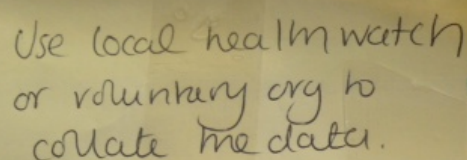 Use local healthwatch
or voluntary org to
collate the data.